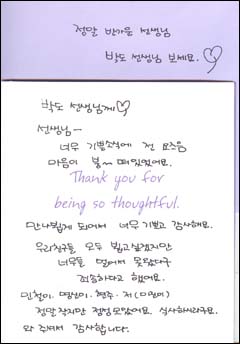 정말 반가운 선생님
박도 선생님 보세요.
박도 선생님께
선생님~
너무 기쁜소식에 전 요즈음
마음이 붕~ 떠있었어요.
Thank you for
being so thoughtful.
만나뵙게 되어서 너무 기쁘고 감사해요.
우리친구들 모두 뵙고싶었지만
너무들 멀어서 못왔다구
죄송하다고 했어요.
민철이. 현주. 저 (미현이)
정말 작지만 정성 모았어요. 식사하시라구요.
와 주셔서 감사합니다.